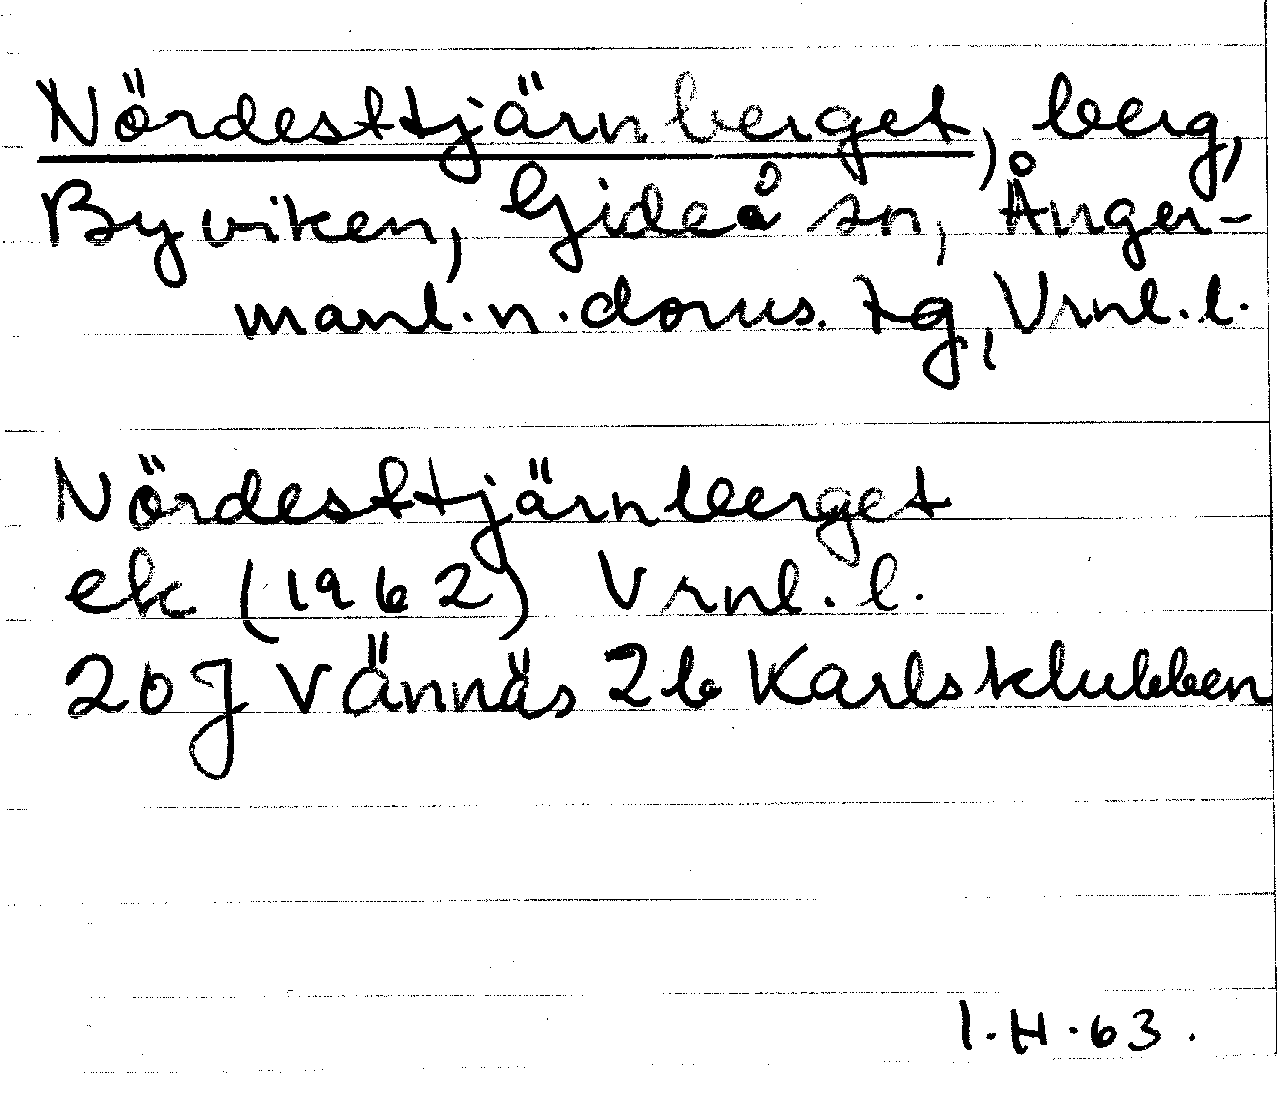 Nördesttjärnberget, berg,
Byviken, Gideå sn, Ånger-
manl. n. doms. tg, Vrnl. l.
Nördesttjärnberget
ek (1962) Vrnl. l.
20J Vännäs 2b Karlsklubben
I.H.63.